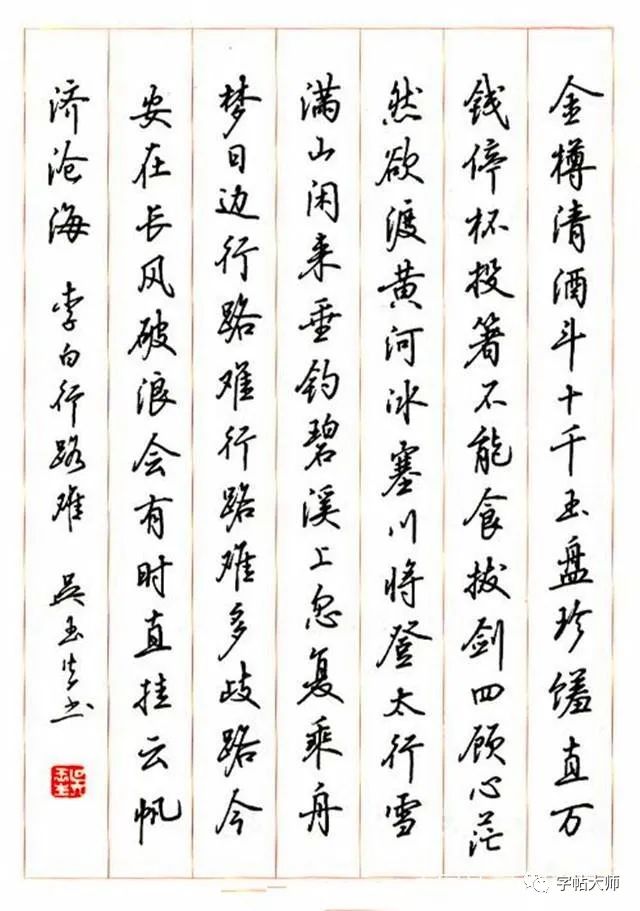 金樽清酒斗十千玉盘珍馐直万
钱停杯投箸不能食拔剑四顾心茫
然欲渡黄河冰塞川将登太行雪
满山闲来垂钓碧溪上忽复乘舟
梦日边行路难行路难多歧路今
安在长风破浪会有时直挂云帆
济沧海 李白行路难 吴玉生书
字帖大师